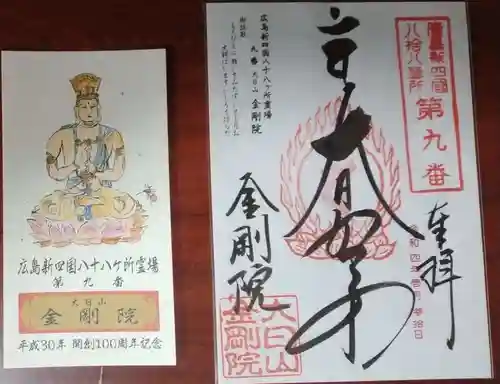 広島新四国八十八ヶ所霊場
第九番
大日山
金剛院
平成30年 開創100周年記念
廣島新四國
八拾八箇所
第九番
奉拝
大日如来
金剛院
広島新四国八十八ヶ所霊場
九番 大日山 金剛院
御詠歌
大日山
金剛院